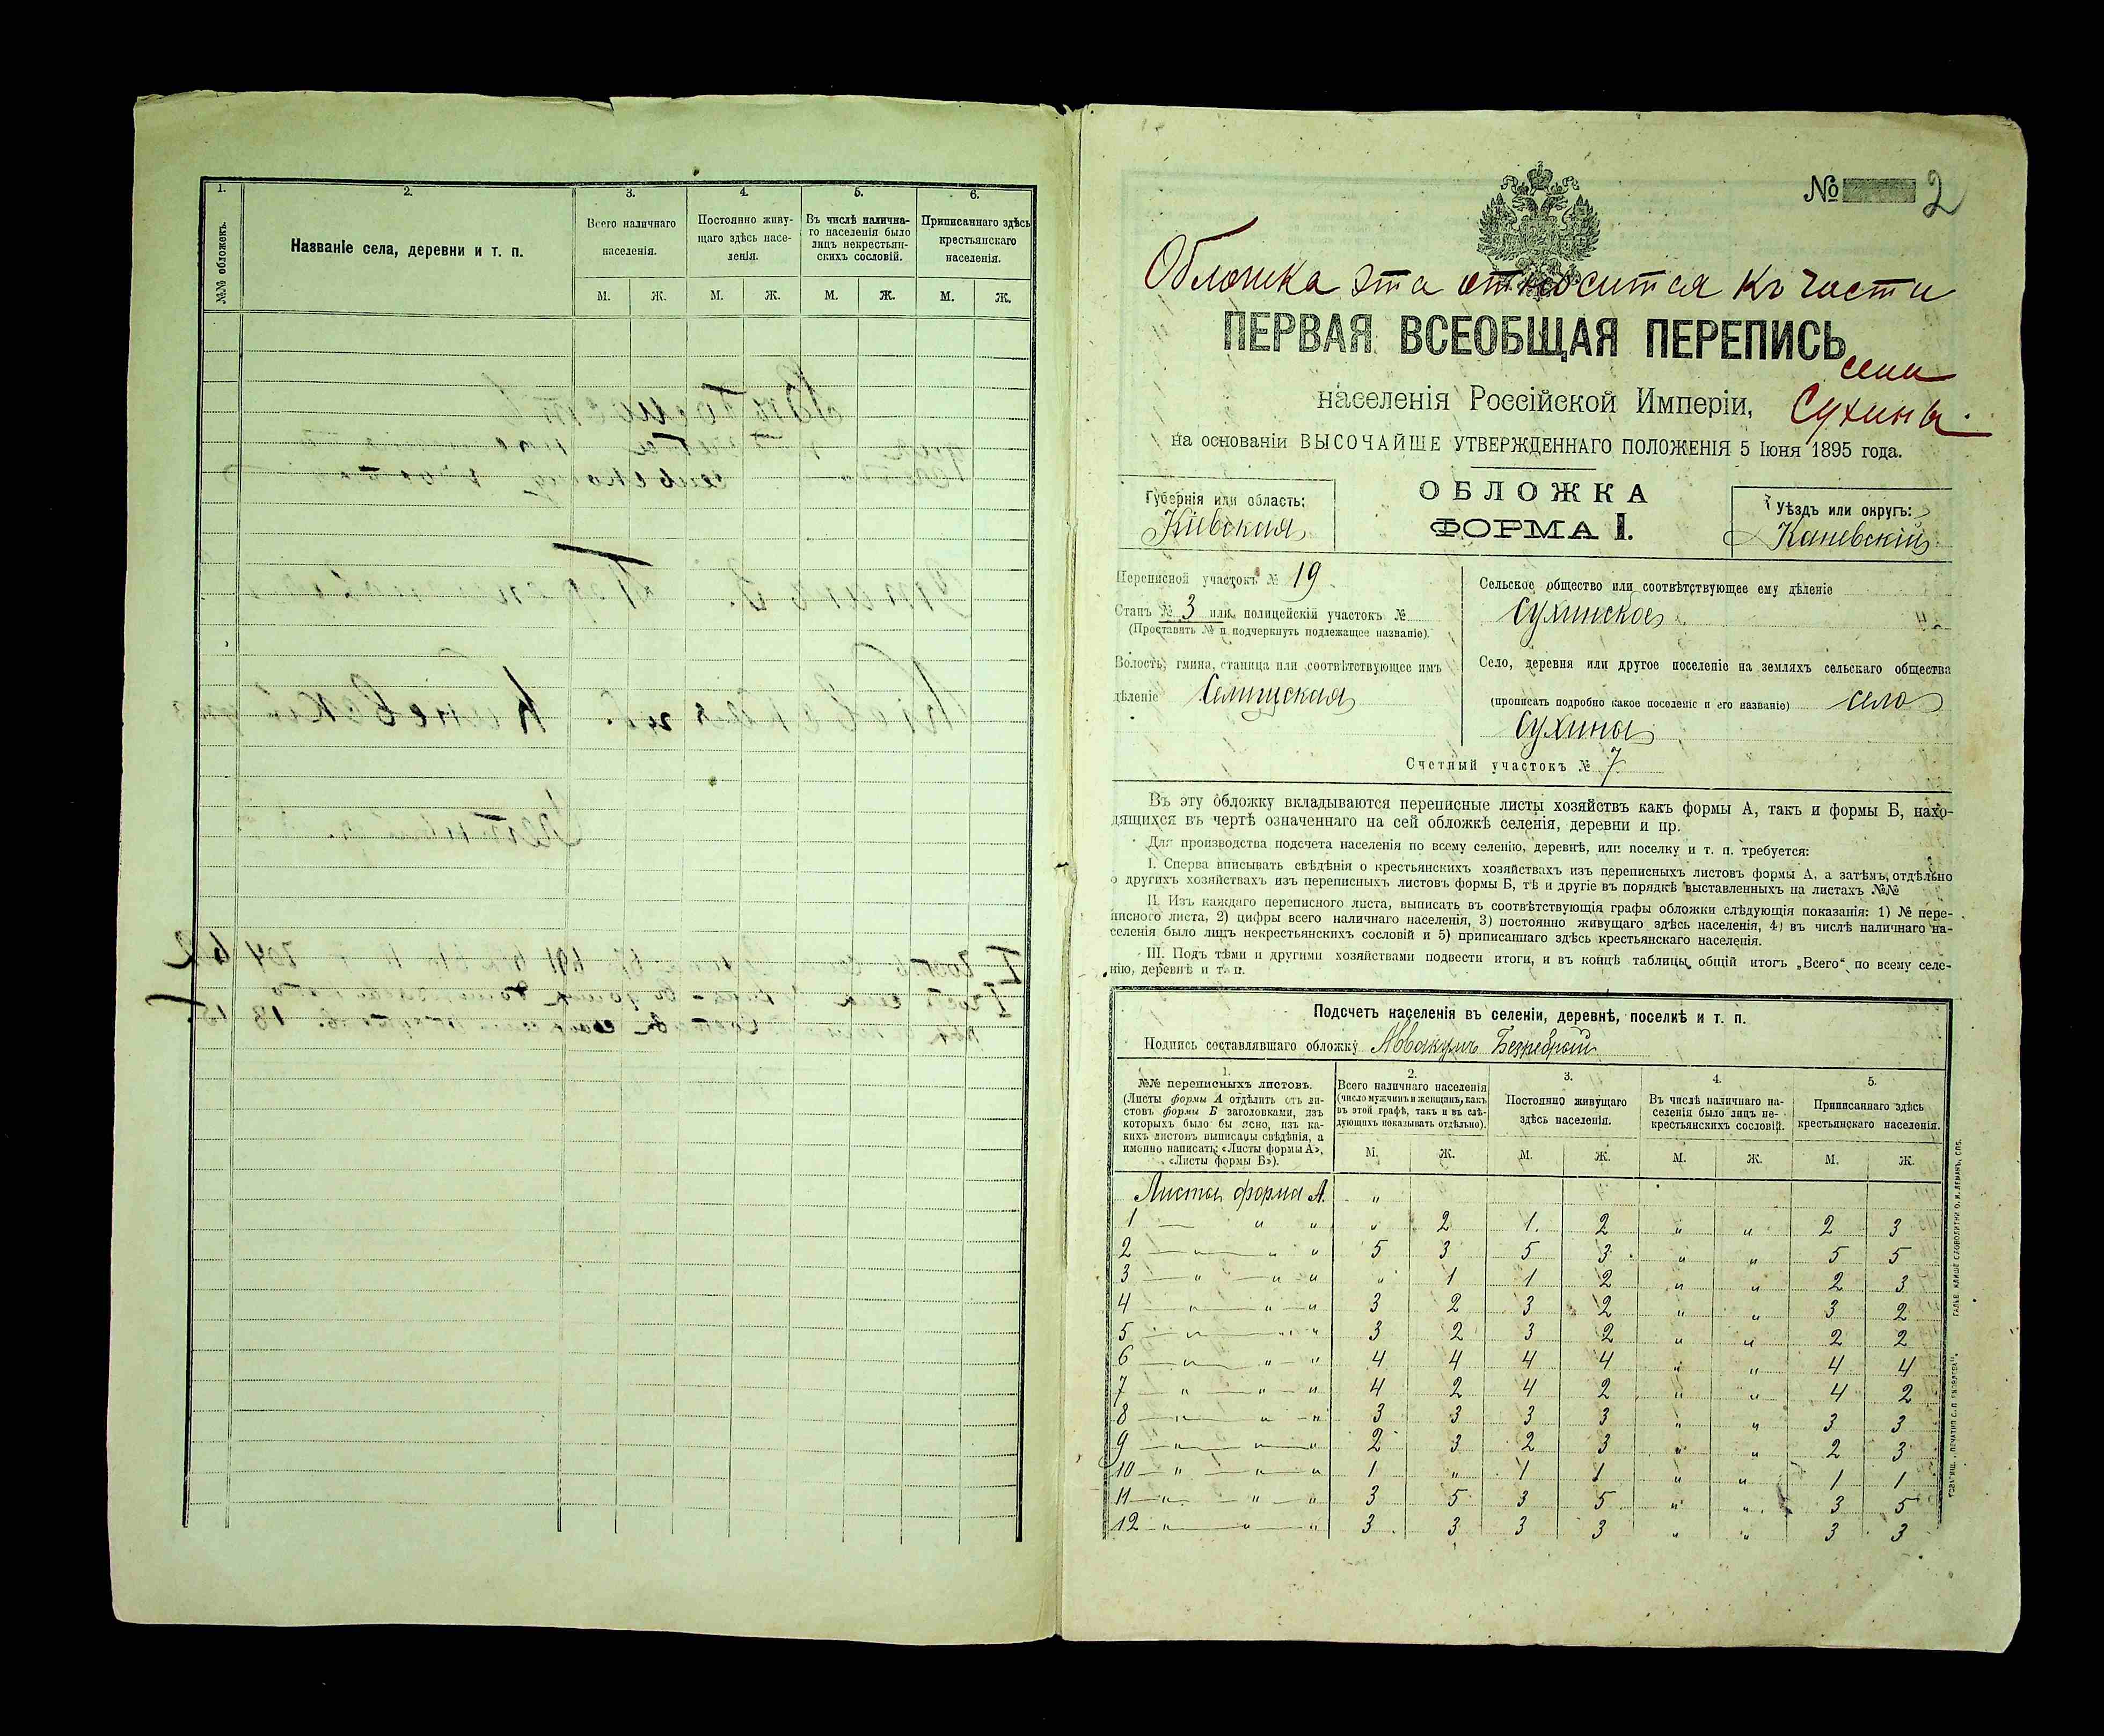 1.
2.
3.
4.
5.
6.
№№ обложекъ.
Названіе села, деревни и т. п.
Всего наличнаго
населенія.
Постоянно живу-
щаго здѣсь насе-
ленія.
Въ числѣ налична-
го населенія было
лицъ некрестьян-
скихъ сословій.
Приписаннаго здѣсь
крестьянскаго
населенія.
М. Ж. М. Ж. М. Ж. М. Ж.
№ 2
Обложка эта относится къ части
ПЕРВАЯ ВСЕОБЩАЯ ПЕРЕПИСЬ
села
населенія Россійской Имперіи,
Сухины.
на основаніи ВЫСОЧАЙШЕ УТВЕРЖДЕННАГО ПОЛОЖЕНІЯ 5 Іюня 1895 года.
Губернія или область:
Кіевская
ОБЛОЖКА
ФОРМА I.
Уѣздъ или округъ:
Каневскій
Переписной участокъ № 19
Станъ № 3 или полицейскій участокъ №
(Проставить № и подчеркнуть подлежащее названіе).
Волость, гмина, станица или соотвѣтствующее имъ
дѣленіе Селищская
Сельское общество или соотвѣтствующее ему дѣленіе
Сухинское
Село, деревня или другое поселеніе на земляхъ сельскаго общества
(прописать подробно какое поселеніе и его названіе) село
Сухины
Счетный участокъ № 7
Въ эту обложку вкладываются переписные листы хозяйствъ какъ формы А, такъ и формы Б, нахо-
дящихся въ чертѣ означеннаго на сей обложкѣ селенія, деревни и пр.
Для производства подсчета населенія по всему селенію, деревнѣ, или поселку и т. п. требуется:
I. Сперва вписывать свѣдѣнія о крестьянскихъ хозяйствахъ изъ переписныхъ листовъ формы А, а затѣмъ, отдѣльно
о другихъ хозяйствахъ изъ переписныхъ листовъ формы Б, тѣ и другіе въ порядкѣ выставленныхъ на листахъ №№
II. Изъ каждаго переписного листа, выписать въ соотвѣтствующія графы обложки слѣдующія показанія: 1) № пере-
писного листа, 2) цифры всего наличнаго населенія, 3) постоянно живущаго здѣсь населенія, 4) въ числѣ наличнаго на-
селенія было лицъ некрестьянскихъ сословій и 5) приписаннаго здѣсь крестьянскаго населенія.
III. Подъ тѣми и другими хозяйствами подвести итоги, и въ концѣ таблицы общій итогъ „Всего“ по всему селе-
нію, деревнѣ и т. п.
Подсчетъ населенія въ селеніи, деревнѣ, поселкѣ и т. п.
Подпись составлявшаго обложку Аввакумъ
1.
№№ переписныхъ листовъ.
(Листы формы А отдѣлить отъ ли-
стовъ формы Б заголовками, изъ
которыхъ было бы ясно, изъ ка-
кихъ листовъ выписаны свѣдѣнія, а
именно написать: «Листы формы А»,
«Листы формы Б»).
2.
Всего наличнаго населенія
(число мужчинъ и женщинъ, какъ
въ этой графѣ, такъ и въ слѣ-
дующихъ показывать отдѣльно).
3.
Постоянно живущаго
здѣсь населенія.
4.
Въ числѣ наличнаго на-
селенія было лицъ не-
крестьянскихъ сословій.
5.
Приписаннаго здѣсь
крестьянскаго населенія.
М. Ж. М. Ж. М. Ж. М. Ж.
Листы форма А. „
1 — „ „ „ 2 1. 2 „ „ 2 3
2 — „ — „ „ 5 3 5 3 „ „ 5 5
3 — „ — „ „ „ 1 1 2 „ „ 2 3
4 — „ — „ — „ 3 2 3 2 „ „ 3 2
5 — „ — „ „ 3 2 3 2 „ „ 2 2
6 — „ — „ — „ 4 4 4 4 „ „ 4 4
7 — „ — „ — „ 4 2 4 2 „ „ 4 2
8 — „ — „ — „ 3 3 3 3 „ „ 3 3
9 — „ — „ — „ 2 3 2 3 „ „ 2 3
10 — „ — „ — „ 1 „ 1 1 „ „ 1 1
11 — „ — „ — „ 3 5 3 5 „ „ 3 5
12 — „ — „ — „ 3 3 3 3 „ „ 3 3